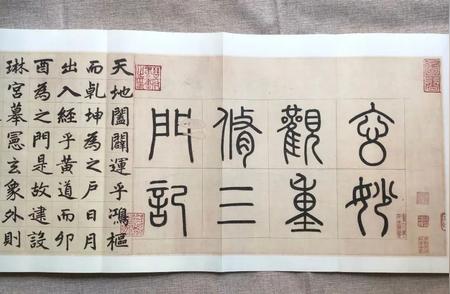 玄妙
觀重
脩三
門記
天地闔闢運乎鴻樞
而乾坤為之戶日月
出入經乎黃道而卯
酉為之門是故建設
琳宮摹憲玄象外則